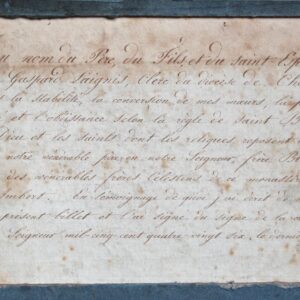 nom du Père, du Fils et du Saint
Gaspard Saignes, Clerc du diocèse de
la Stabilité, la conversion de mes mœurs,
et l'obéissance selon la règle de Saint B
Dieu et les saints dont les reliques reposent
notre vénérable père en notre Seigneur, frère
des vénérables frères Célestins de ce monastère
En témoignage de quoi j'ai écrit de
présent billet et l'ai signé du signe de la
Seigneur mil-cinq-cent quatre-vingt six, le dernier